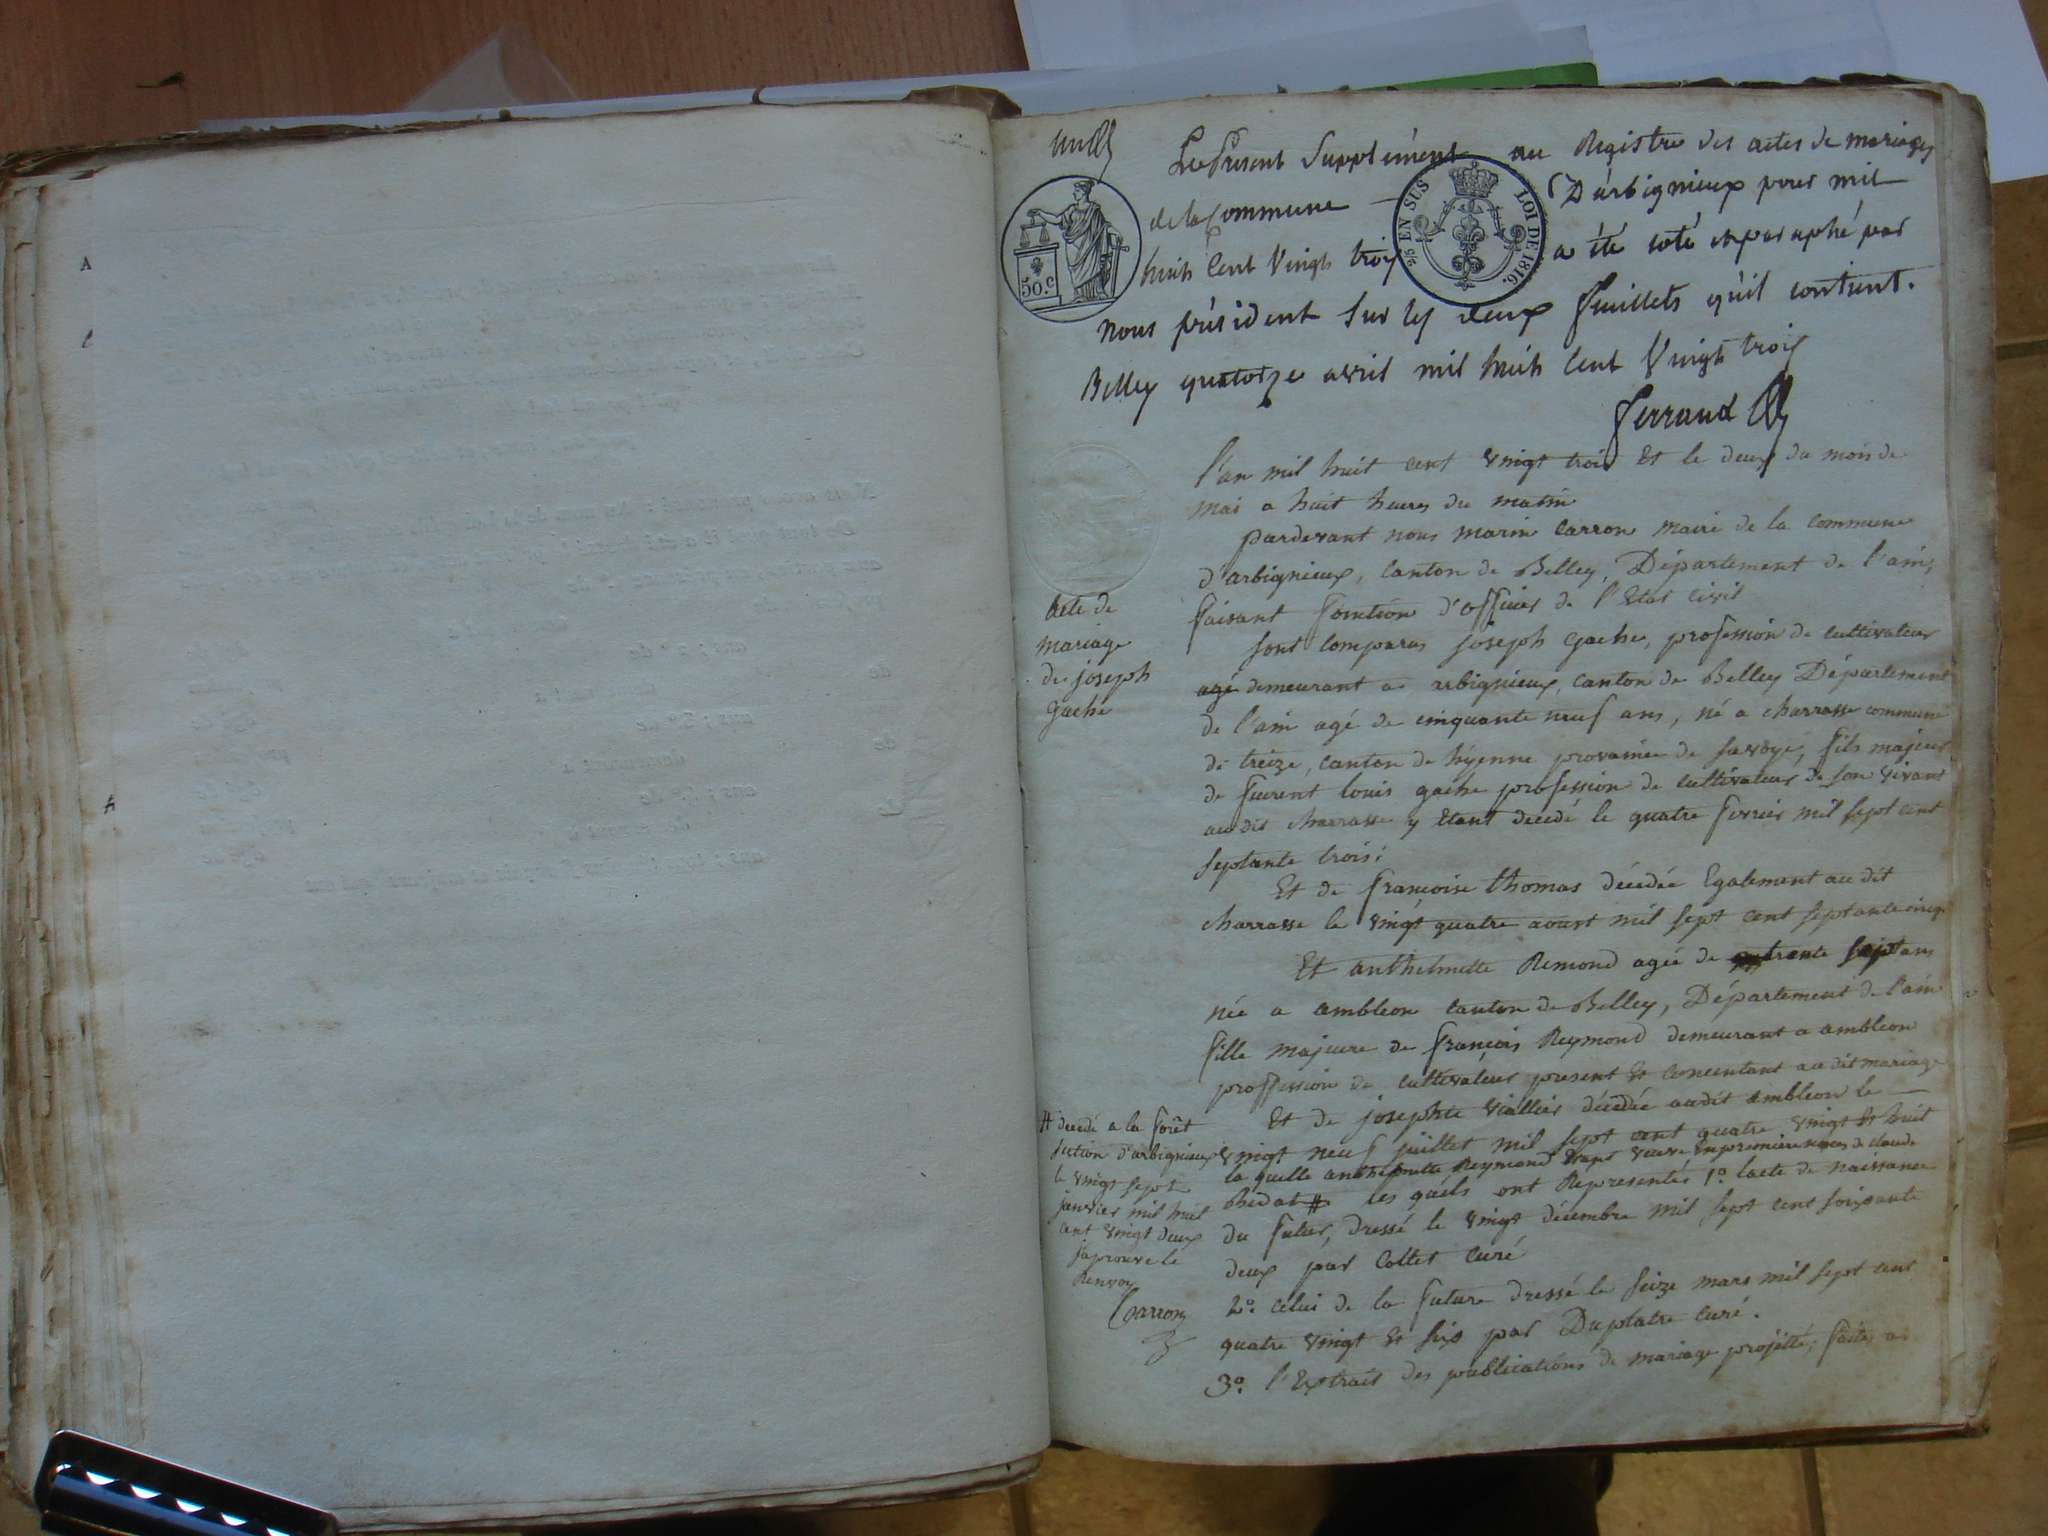 Le Présent Supplément au Registre des actes de mariages
de la Commune D'arbignieux pour mil
huit Cent Vingt trois a été coté et paraphé par
nous président Sur les deux feuillets qu'il contient.
Belley quatorze avril mil huit Cent Vingt trois
ferrand
50.c
EN SUS
LOI DE 1816.
l'an mil huit cent vingt trois Et le deux du mois de
mai a huit heures du matin
pardevant nous marin Carron maire de la commune
d'arbignieux, Canton de Belley, Département de l'ain,
faisant fonction d'officier de l'Etat Civil
acte de
mariage
de joseph
gache
sont Comparus joseph gache, profession de cultivateur
agé demeurant a arbignieux, canton de Belley Département
de l'ain agé de cinquante neuf ans, né a charrasse commune
de treize, canton de hyenne provaince de savoye, fils majeur
de feurent louis gache profession de cultivateur de son vivant
au dit charrasse y Etant décédé le quatre fevrier mil sept cent
septante trois;
Et de francoise thomas décédée Egalement au dit
charrasse le vingt quatre aoust mil sept cent septante cinq
Et anthelmette Remond agée de trente sept ans
née a ambleon canton de Belley, Département de l'ain
fille majeure de françois Reymond demeurant a ambleon
proffession de cultivateur present Et concentant au dit mariage
Et de josephte viallier décédée audit ambleon le
vingt neuf juillet mil sept cent quatre vingt Et huit
la quelle anthelmette Reymond veuve En premiere noces de claude
Bidat # les quels ont Representés 1o. l'acte de naissance
du futur, dressé le vingt décembre mil sept cent soixante
deux par Collet curé
2o. celui de la future dressé le seize mars mil sept cent
quatre vingt Et six par Duplatre curé.
3o. l'Extrait des publications de mariage projetté, faites a
# décédé a la forêt
section d'arbignieux
le vingt sept
janvier mil huit
cent vingt deux
japrouve le
Renvoy
Carron